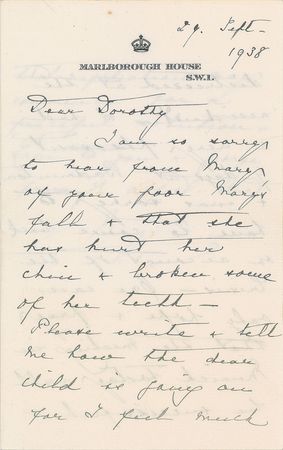 29. Sept-
1938
MARLBOROUGH HOUSE
S.W.1.
Dear Dorothy
I am so sorry
to hear from Mary
of your poor Mary's
fall & that she
has hurt her
chin & broken some
of her teeth -
Please write & tell
me how the dear
child is going on
for I feel much